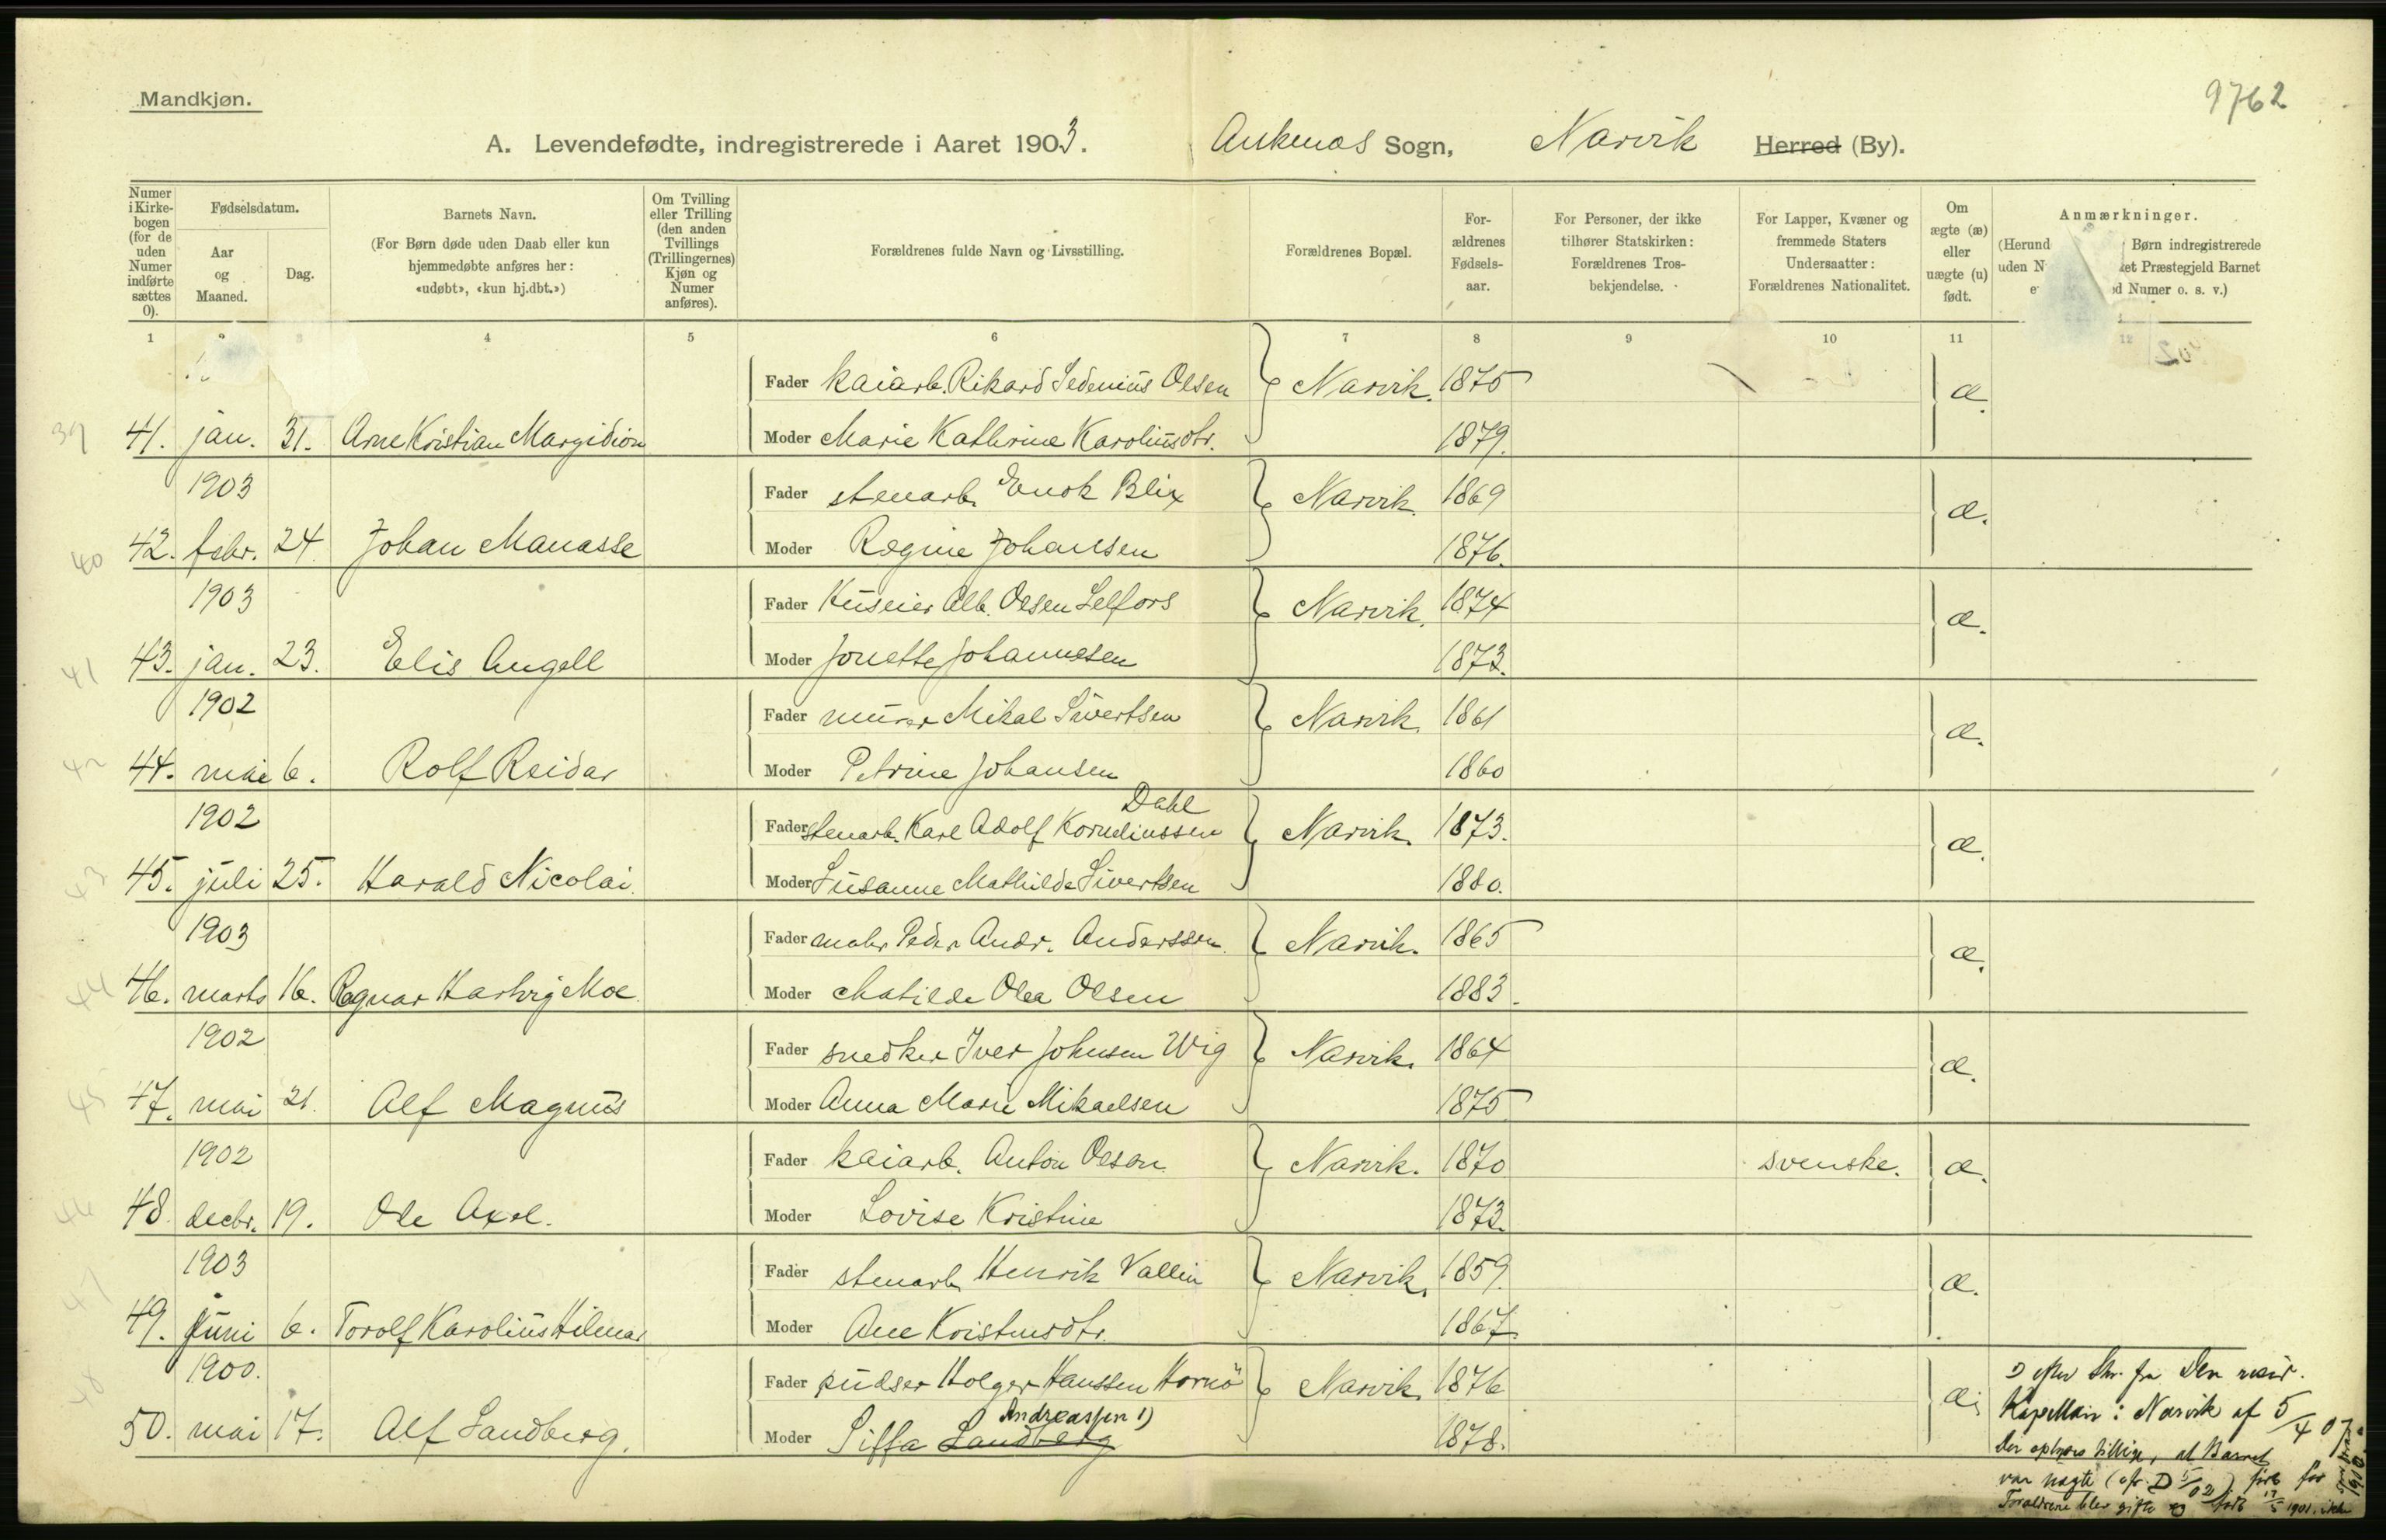 9762
Mandkjøn.
A. Levendefødte, indregistrerede i Aaret 1903. Ankenæs Sogn, Narvik Herred (By).
Numer i Kirkebogen (for de uden Numer indførte sættes 0).
Fødselsdatum.
Aar og Maaned.
Dag.
Barnets Navn.
(For Børn døde uden Daab eller kun hjemmedøbte anføres her: «udøbt», «kun hj.dbt.»)
Om Tvilling eller Trilling (den anden Tvillings (Trillingernes) Kjøn og Numer anføres).
Forældrenes fulde Navn og Livsstilling.
Forældrenes Bopæl.
Forældrenes Fødselsaar.
For Personer, der ikke tilhører Statskirken: Forældrenes Trosbekjendelse.
For Lapper, Kvæner og fremmede Staters Undersaatter: Forældrenes Nationalitet.
Om ægte (æ) eller uægte (u) født.
Anmærkninger.
(Herund Børn indregistrerede
uden N ket Præstegjeld Barnet
e d Numer o. s. v.)
1 2 3 4 5 6 7 8 9 10 11 12
Fader kaiarb. Rikard Sedenius Olsen Narvik. 1875 æ.
39 41. jan. 31. Arne Kristian Margidion Moder Marie Kathrine Karoliusdtr. 1879.
1903 Fader stenarb. Enok Blix Narvik. 1869 æ.
40 42. febr. 24. Johan Manasse Moder Regine Johansen 1876.
1903 Fader Huseier Alb. Olsen Selfors Narvik. 1874 æ.
41 43. jan. 23. Elis Angell Moder Jonette Johannesen 1873.
1902 Fader murer Mikal Sivertsen Narvik. 1861 æ.
42 44. mai 6. Rolf Reidar Moder Petrine Johansen 1860
Dahl
1902 Fader stenarb. Karl Adolf Korneliussen Narvik. 1873. æ.
43 45. juli 25. Harald Nicolai. Moder Susanne Mathilde Sivertsen 1880.
1903 Fader maler Peder Andr. Anderssen Narvik. 1865 æ.
44 46. marts 16. Ragnar Hartvig Moe. Moder Matilde Olea Olsen 1883.
1902 Fader snedker Iver Johnsen Wig Narvik. 1864 æ.
45 47. mai 21. Alf Magnus Moder Anna Marie Mikaelsen 1875
1902 Fader kaiarb. Anton Olson Narvik. 1870 svenske. æ.
46 48. decbr. 19. Ole Axel. Moder Lovise Kristine 1873.
1903 Fader stenarb. Henrik Vallin Narvik. 1859. æ.
47 49. juni 6. Torolf Karolius Hilmar Moder Ane Kristinsdtr. 1867.
1900. Fader pudser Holger Hanssen Hornö Narvik. 1876 æ;
Andreassen 1)
48 50. mai 17. Alf Sandberg. Moder Siffa Sandberg 1878.
efter Skr. fra den resid.
Kapellan i Narvik af 5/4 07
Der oplyses tillige, at Barnet
var uægte
Forældrene blev gifte født 17/5 1901, ikke
1900.